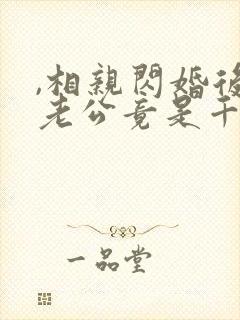 ,相親閃婚後
老公竟是千
一品堂